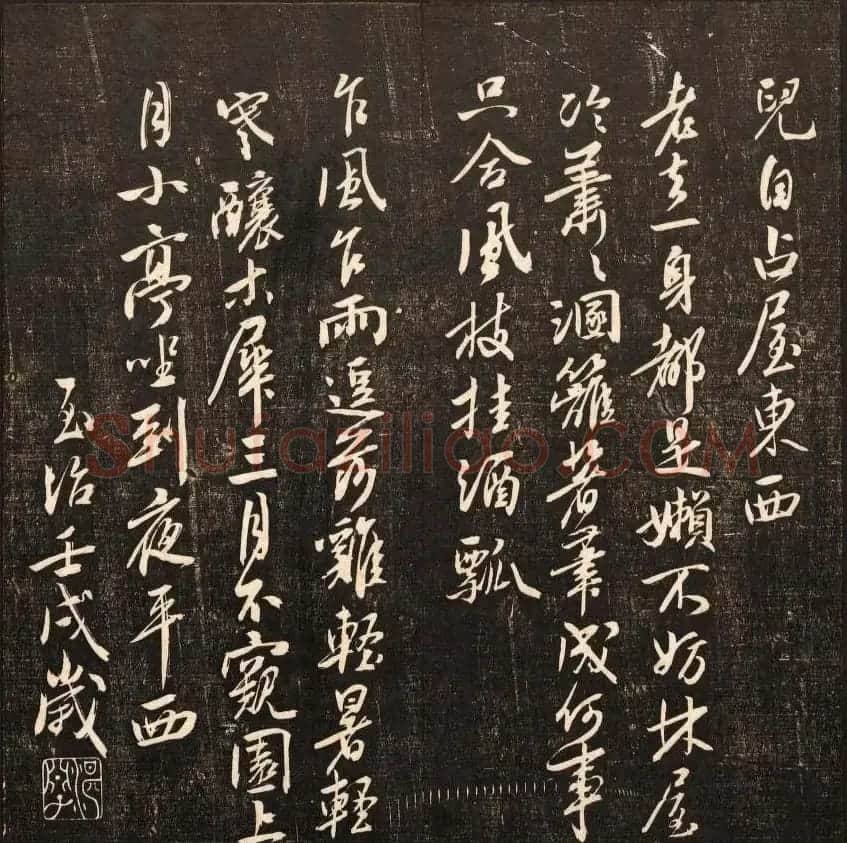 兒自占屋東西
老去一身都是嬾不妨林屋
冷蕭〻溷籬著筆成何事
只合風枝挂酒瓢
乍風乍雨逗輕暑輕
寒釀木犀三月不窺園上
月小亭坐到夜平西
至治壬戌歲
shufaziliao.COM